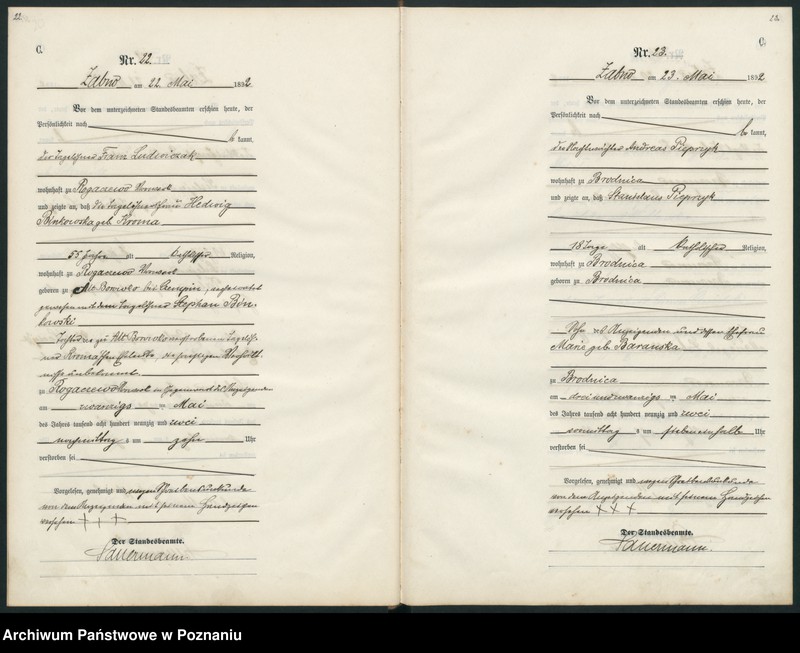 22.
C.
Nr. 22.
Żabno am 22. Mai 1892
Vor dem unterzeichneten Standesbeamten erschien heute, der
Persönlichkeit nach
be kannt,
der Tagelöhner Franz Ludwiczak
wohnhaft zu Rogaczewo Vorwerk
und zeigte an, daß die Hedwig
geb. Kroma
55 Jahre alt katholischer Religion,
wohnhaft zu Rogaczewo Vorwerk
geboren zu bei Czempin,
gewesen mit dem Tagelöhner Stephan Bin-
kowski
Tochter des zu verstorbenen
unbekannt
zu Rogaczewo Vorwerk in Gegenwart des Anzeigenden
am zwanzigs ten Mai
des Jahres tausend acht hundert neunzig und zwei
nachmittag s um zehn Uhr
verstorben sei
Vorgelesen, genehmigt und wegen Schreibensunkunde
von dem Anzeigenden mit seinem Handzeichen
versehen + + +
Der Standesbeamte.
Sauermann
22.
C.
Nr. 23.
Żabno am 23. Mai 1892
Vor dem unterzeichneten Standesbeamten erschien heute, der
Persönlichkeit nach
be kannt,
der Andreas Pieprzyk
wohnhaft zu Brodnica
und zeigte an, daß Stanislaus Pieprzyk
18 Tage alt katholischer Religion,
wohnhaft zu Brodnica
geboren zu Brodnica
Sohn des Anzeigenden und dessen Ehefrau
Marie geb. Baranska
zu Brodnica
am dreiundzwanzigs ten Mai
des Jahres tausend acht hundert neunzig und zwei
vormittag s um siebeneinhalb Uhr
verstorben sei
Vorgelesen, genehmigt und wegen Schreibensunkunde
von dem Anzeigenden mit seinem Handzeichen
versehen + + +
Der Standesbeamte.
Sauermann.
Archiwum Państwowe w Poznaniu